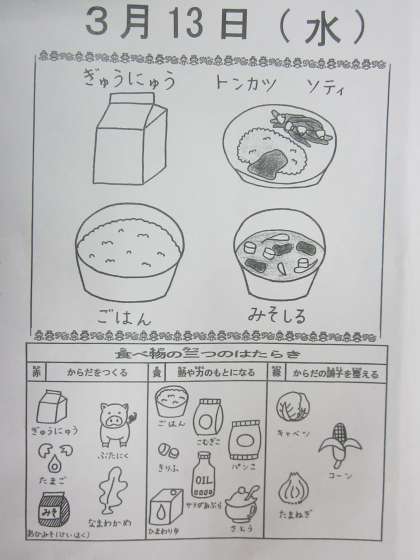 3月13日(水)
ぎゅうにゅう トンカツ ソティ
ごはん みそしる
食べ物の三つのはたらき
赤 からだをつくる 黄 熱や力のもとになる 緑 からだの調子を整える
ぎゅうにゅう
ぶたにく
たまご
みそ
なまわかめ
ごはん
こむぎこ
きりふ
パンこ
OIL
サラダあぶら
ひまわり
さとう
キャベツ
コーン
たまねぎ